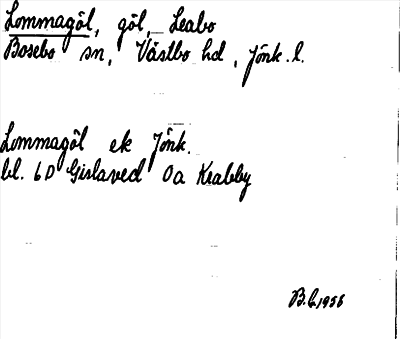 Lommagöl, göl, Leabo
Bosebo sn, Västbo hd, Jönk. l.
Lommagöl ek Jönk.
bl. 6D Gislaved 0a Krabby
B.L. 1956